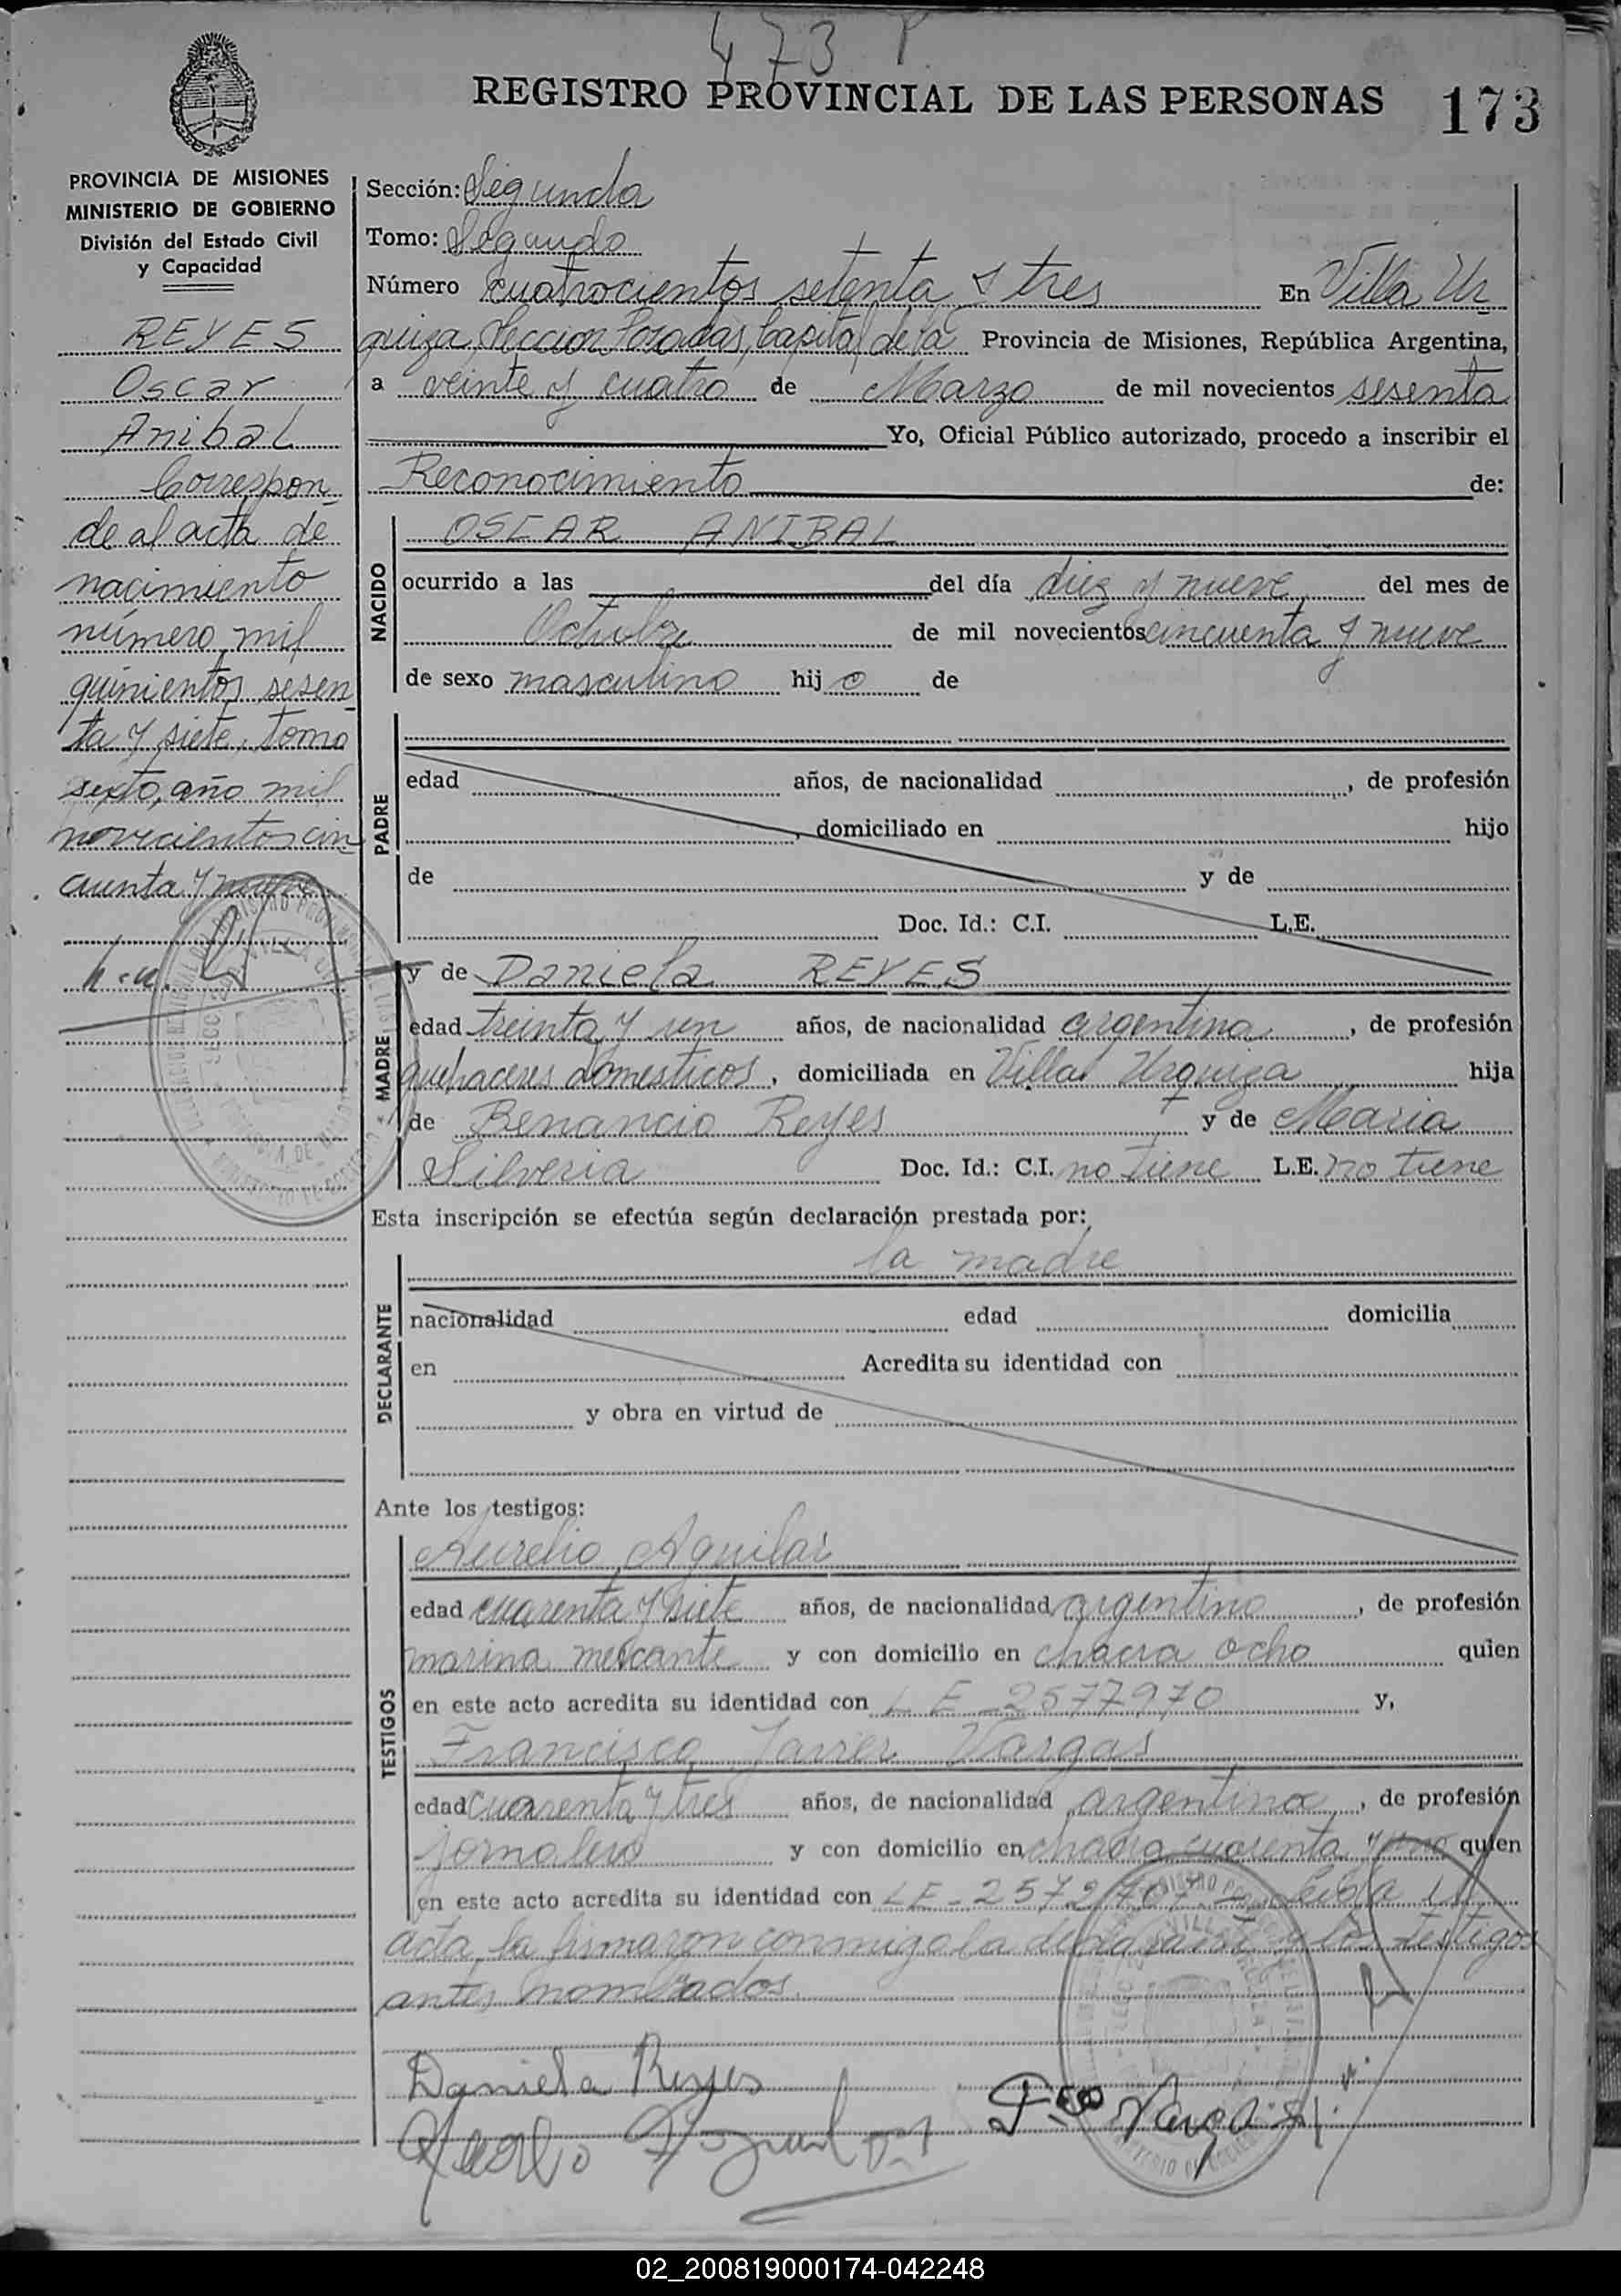 473 P
REGISTRO PROVINCIAL DE LAS PERSONAS 173
PROVINCIA DE MISIONES
MINISTERIO DE GOBIERNO
División del Estado Civil
y Capacidad
REYES
Oscar
Anibal
Correspon-
de al acta de
nacimiento
número mil
quinientos sesen-
ta y siete, tomo
sexto, año mil
novecientos cin-
cuenta y nueve
Sección: Segunda
Tomo: Segundo
Número cuatrocientos setenta y tres En Villa Ur-
quiza, Seccion Posadas, Capital de la Provincia de Misiones, República Argentina,
a veinte y cuatro de Marzo de mil novecientos sesenta
Yo, Oficial Público autorizado, procedo a inscribir el
Reconocimiento de:
NACIDO
OSCAR ANIBAL
ocurrido a las del día diez y nueve del mes de
Octubre de mil novecientos cincuenta y nueve
de sexo masculino hijo de
PADRE
edad años, de nacionalidad , de profesión
, domiciliado en hijo
de y de
Doc. Id.: C.I. L.E.
MADRE
y de Daniela REYES
edad treinta y un años, de nacionalidad argentina, de profesión
quehaceres domesticos, domiciliada en Villa Urquiza hija
de Benancio Reyes y de Maria
Silveria Doc. Id.: C.I. no tiene L.E. no tiene
Esta inscripción se efectúa según declaración prestada por:
DECLARANTE
la madre
nacionalidad edad domicilia
en Acredita su identidad con
y obra en virtud de
Ante los testigos:
TESTIGOS
Aurelio Aguilar
edad cuarenta y siete años, de nacionalidad argentino, de profesión
marina mercante y con domicilio en chacra ocho quien
en este acto acredita su identidad con LE 2577970 y,
Francisco Javier Vargas
edad cuarenta y tres años, de nacionalidad argentina, de profesión
jornalero y con domicilio en chacra cuarenta y uno quien
en este acto acredita su identidad con LE-2572707 - Leida el
acta la firmaron conmigo la declarante y los testigos
antes nombrados.
Daniela Reyes
Aurelio Aguilar
Fco Vargas
02_200819000174-042248